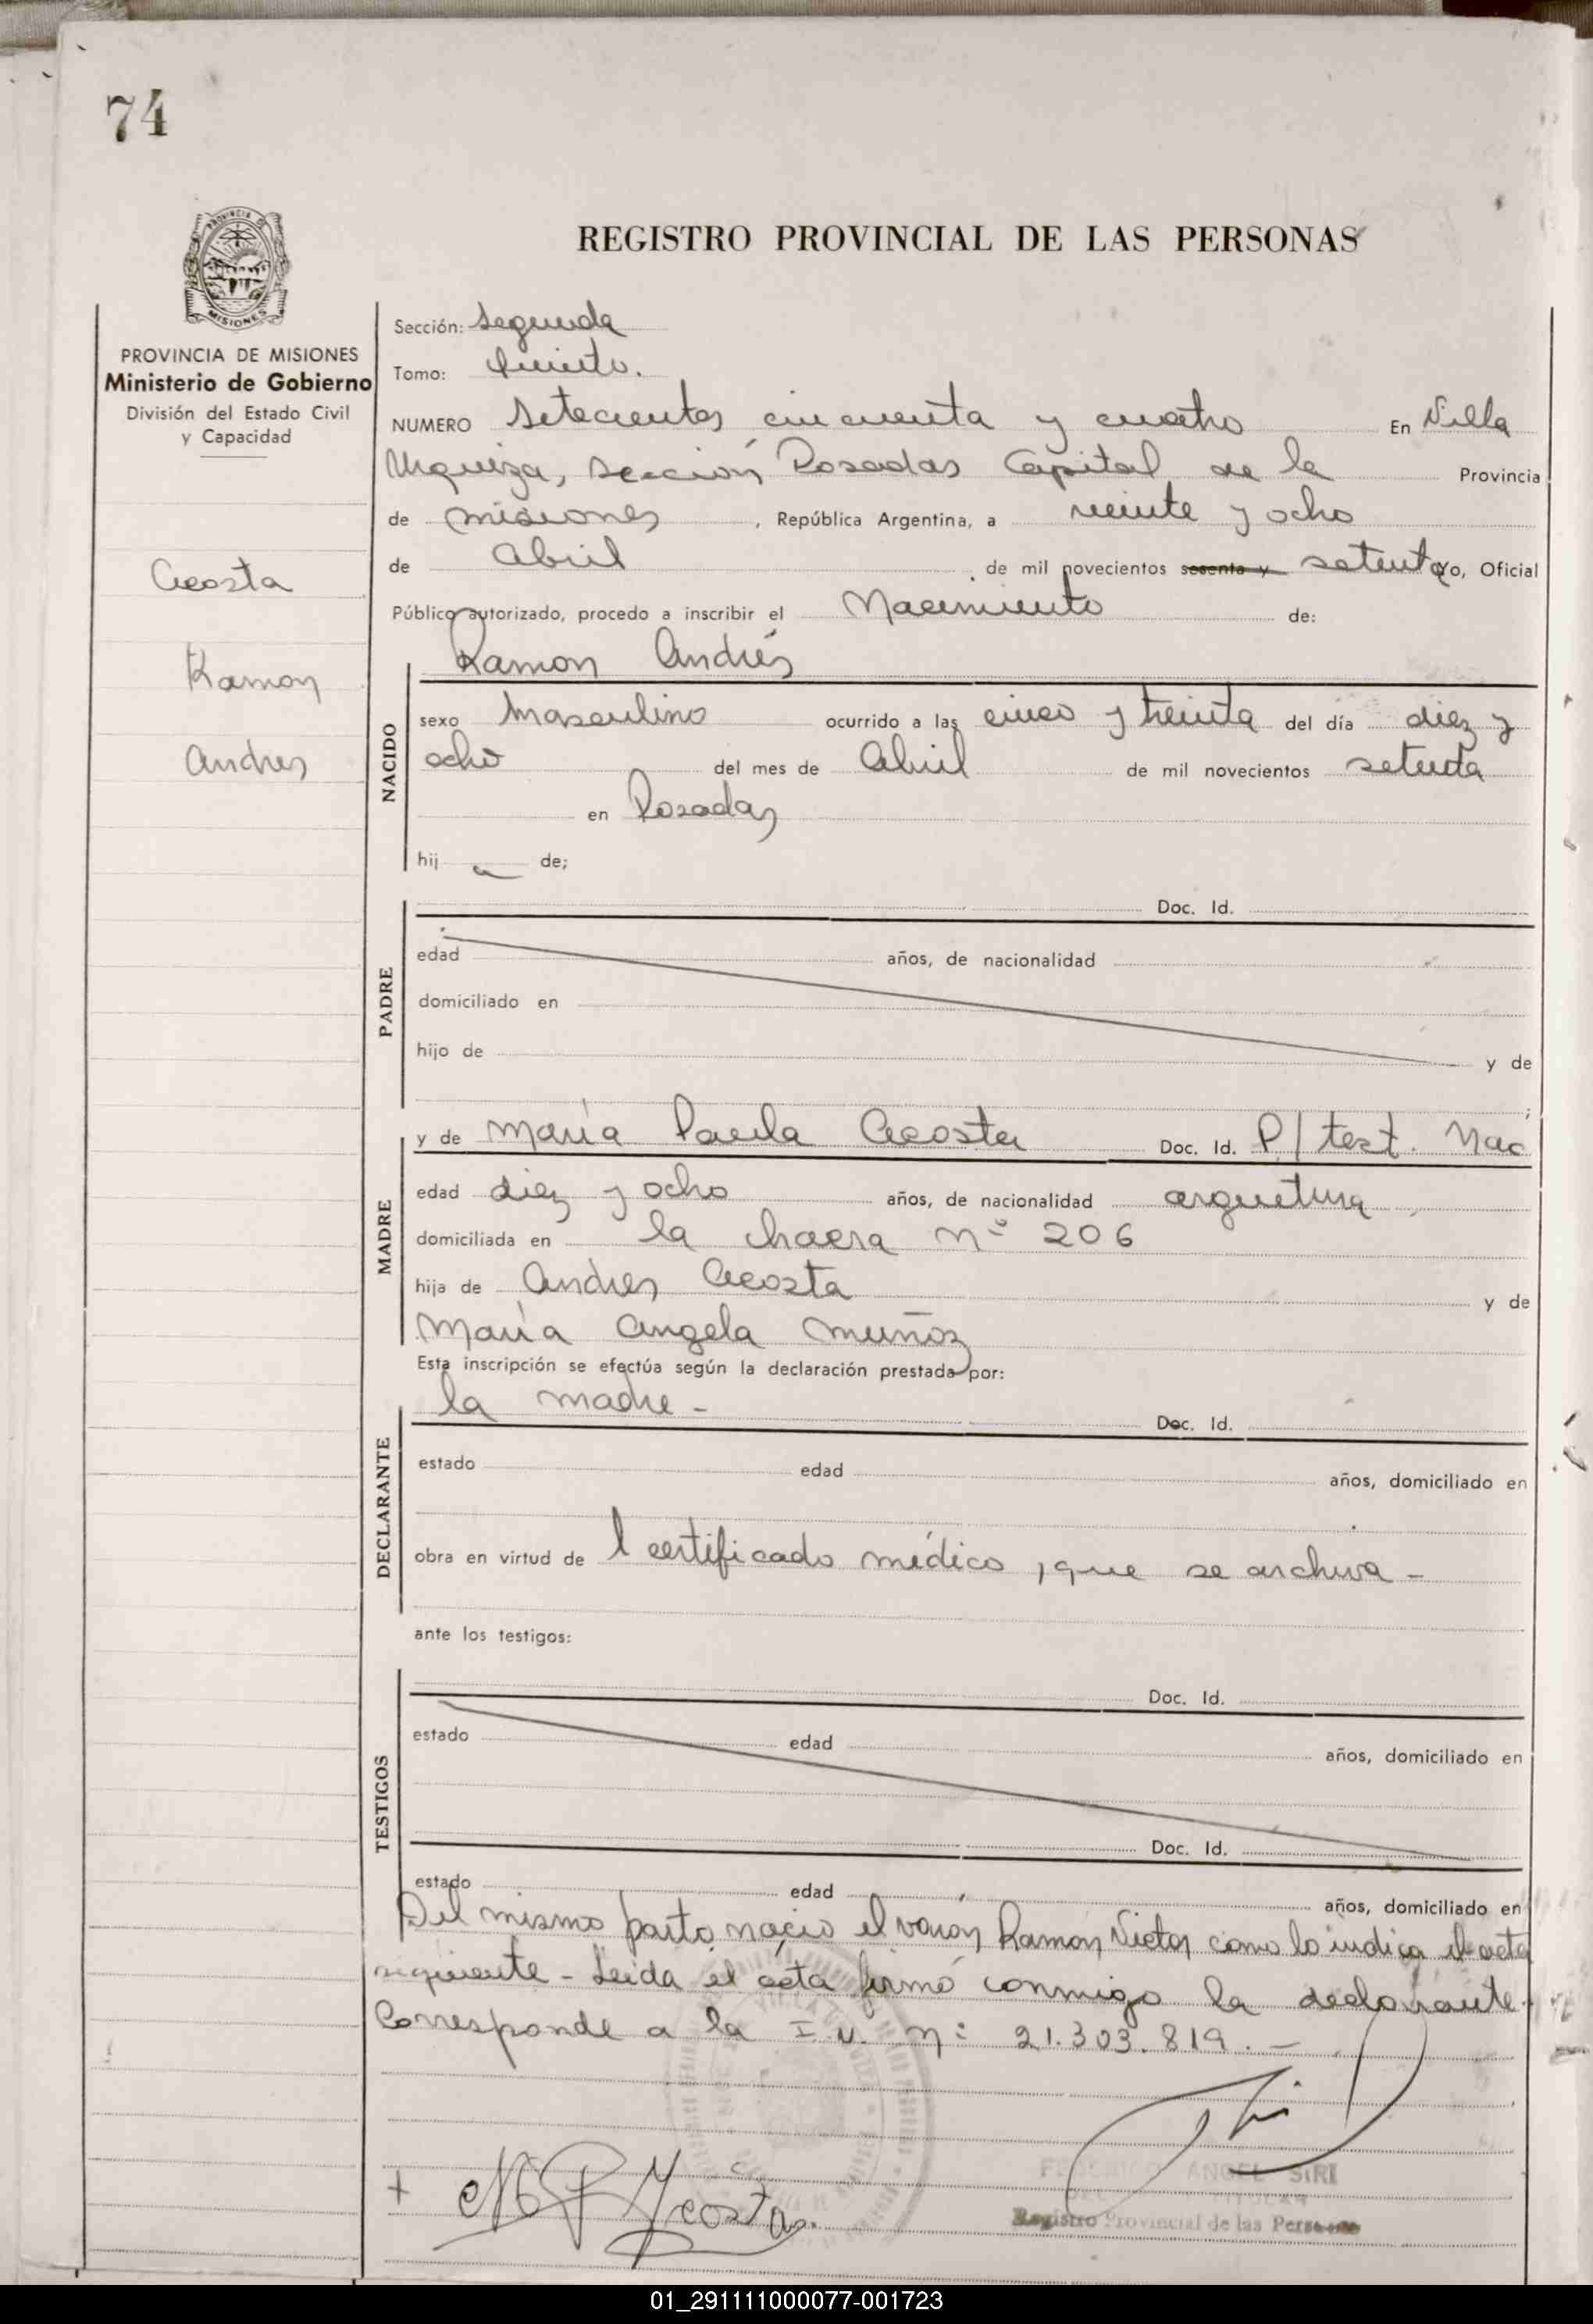 74
PROVINCIA DE
MISIONES
PROVINCIA DE MISIONES
Ministerio de Gobierno
División del Estado Civil
y Capacidad
Acosta
Ramon
Andres
REGISTRO PROVINCIAL DE LAS PERSONAS
Sección: Segunda
Tomo: Quinto.
NUMERO Setecientos cincuenta y cuatro En Villa
Urquiza, Sección Posadas Capital de la Provincia
de misiones, República Argentina, a veinte y ocho
de Abril de mil novecientos sesenta y setenta Yo, Oficial
Público autorizado, procedo a inscribir el Nacimiento de:
Ramon Andrés
NACIDO
sexo Masculino ocurrido a las cinco y treinta del día diez y
ocho del mes de Abril de mil novecientos setenta
en Posadas
hij de;
PADRE
Doc. Id.
edad años, de nacionalidad
domiciliado en
hijo de y de
;
MADRE
y de María Paula Acosta Doc. Id. P/ test. Nac
edad diez y ocho años, de nacionalidad argentina
domiciliada en la chacra nº 206
hija de Andres Acosta y de
María Angela Muñoz
Esta inscripción se efectúa según la declaración prestada por:
DECLARANTE
la madre - Doc. Id.
estado edad años, domiciliado en
obra en virtud de l certificado médico, que se archiva -
ante los testigos:
TESTIGOS
Doc. Id.
estado edad años, domiciliado en
Doc. Id.
estado edad años, domiciliado en
Del mismo parto nació el varón Ramon Victor como lo indica el acta
siguiente - Leida el acta firmó conmigo la declarante.
Corresponde a la I.N. nº 21.303.819. -
+ M P Acosta
FEDERICO ANGEL SIRI
TITULAR
Registro Provincial de las Personas
01_291111000077-001723